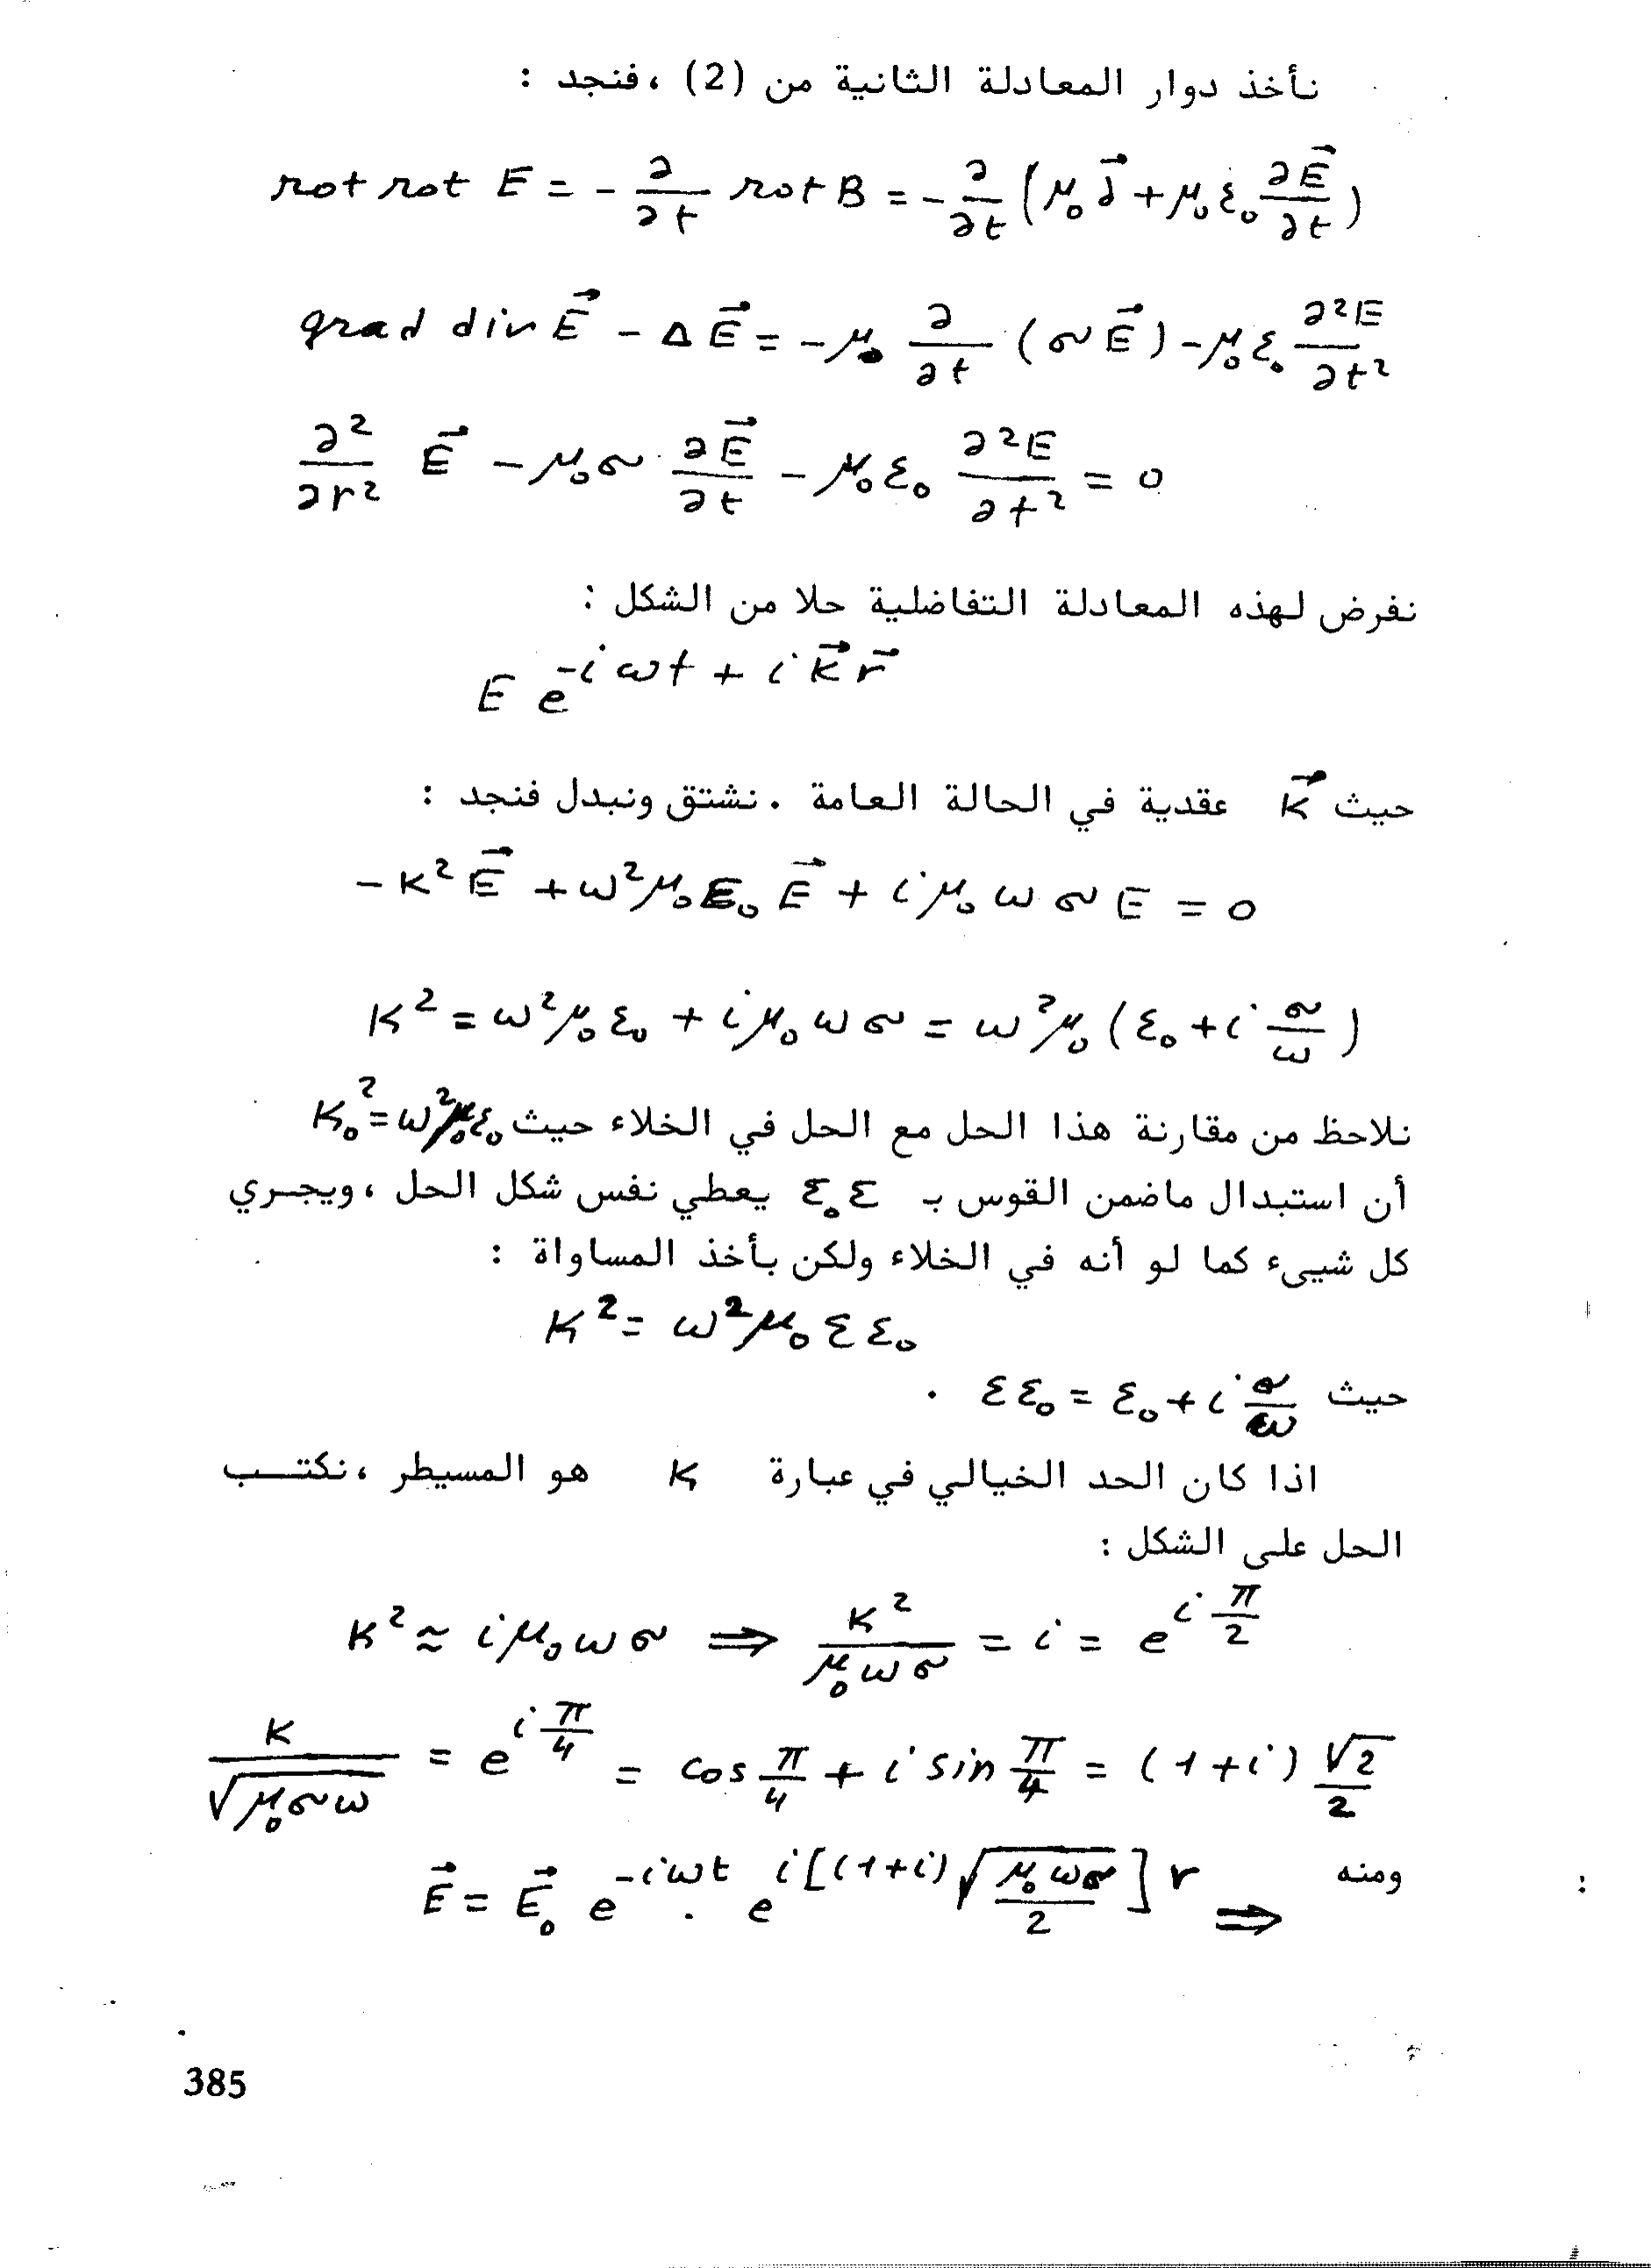 نأخذ دوار المعادلة الثانية من (2) ،فنجد :
rot rot E = - ∂/∂t rot B = - ∂/∂t (μ₀ J⃗ + μ₀ ε₀ ∂E⃗/∂t)
grad div E⃗ - Δ E⃗ = - μ₀ ∂/∂t (σ E⃗) - μ₀ ε₀ ∂²E/∂t²
∂²/∂r² E⃗ - μ₀ σ ∂E⃗/∂t - μ₀ ε₀ ∂²E/∂t² = 0
نفرض لهذه المعادلة التفاضلية حلا من الشكل :
E e^(-iωt + i K⃗ r⃗)
حيث K⃗ عقدية في الحالة العامة . نشتق ونبدل فنجد :
- K² E⃗ + ω² μ₀ ε₀ E⃗ + i μ₀ ω σ E = 0
K² = ω² μ₀ ε₀ + i μ₀ ω σ = ω² μ₀ (ε₀ + i σ/ω)
نلاحظ من مقارنة هذا الحل مع الحل في الخلاء حيث K₀² = ω² μ₀ ε₀
أن استبدال ماضمن القوس بـ ε₀ε يعطي نفس شكل الحل ، ويجري
كل شيىء كما لو أنه في الخلاء ولكن بأخذ المساواة :
K² = ω² μ₀ ε ε₀
حيث ε ε₀ = ε₀ + i σ/ω .
اذا كان الحد الخيالي في عبارة K هو المسيطر ، نكتب
الحل على الشكل :
K² ≈ i μ₀ ω σ ⇒ K²/(μ₀ ω σ) = i = e^(i π/2)
K/√(μ₀ σ ω) = e^(i π/4) = cos π/4 + i sin π/4 = (1 + i) √2/2
ومنه E⃗ = E⃗₀ e^(-iωt) . e^(i[(1+i)√(μ₀ωσ/2)] r) ⇒
385